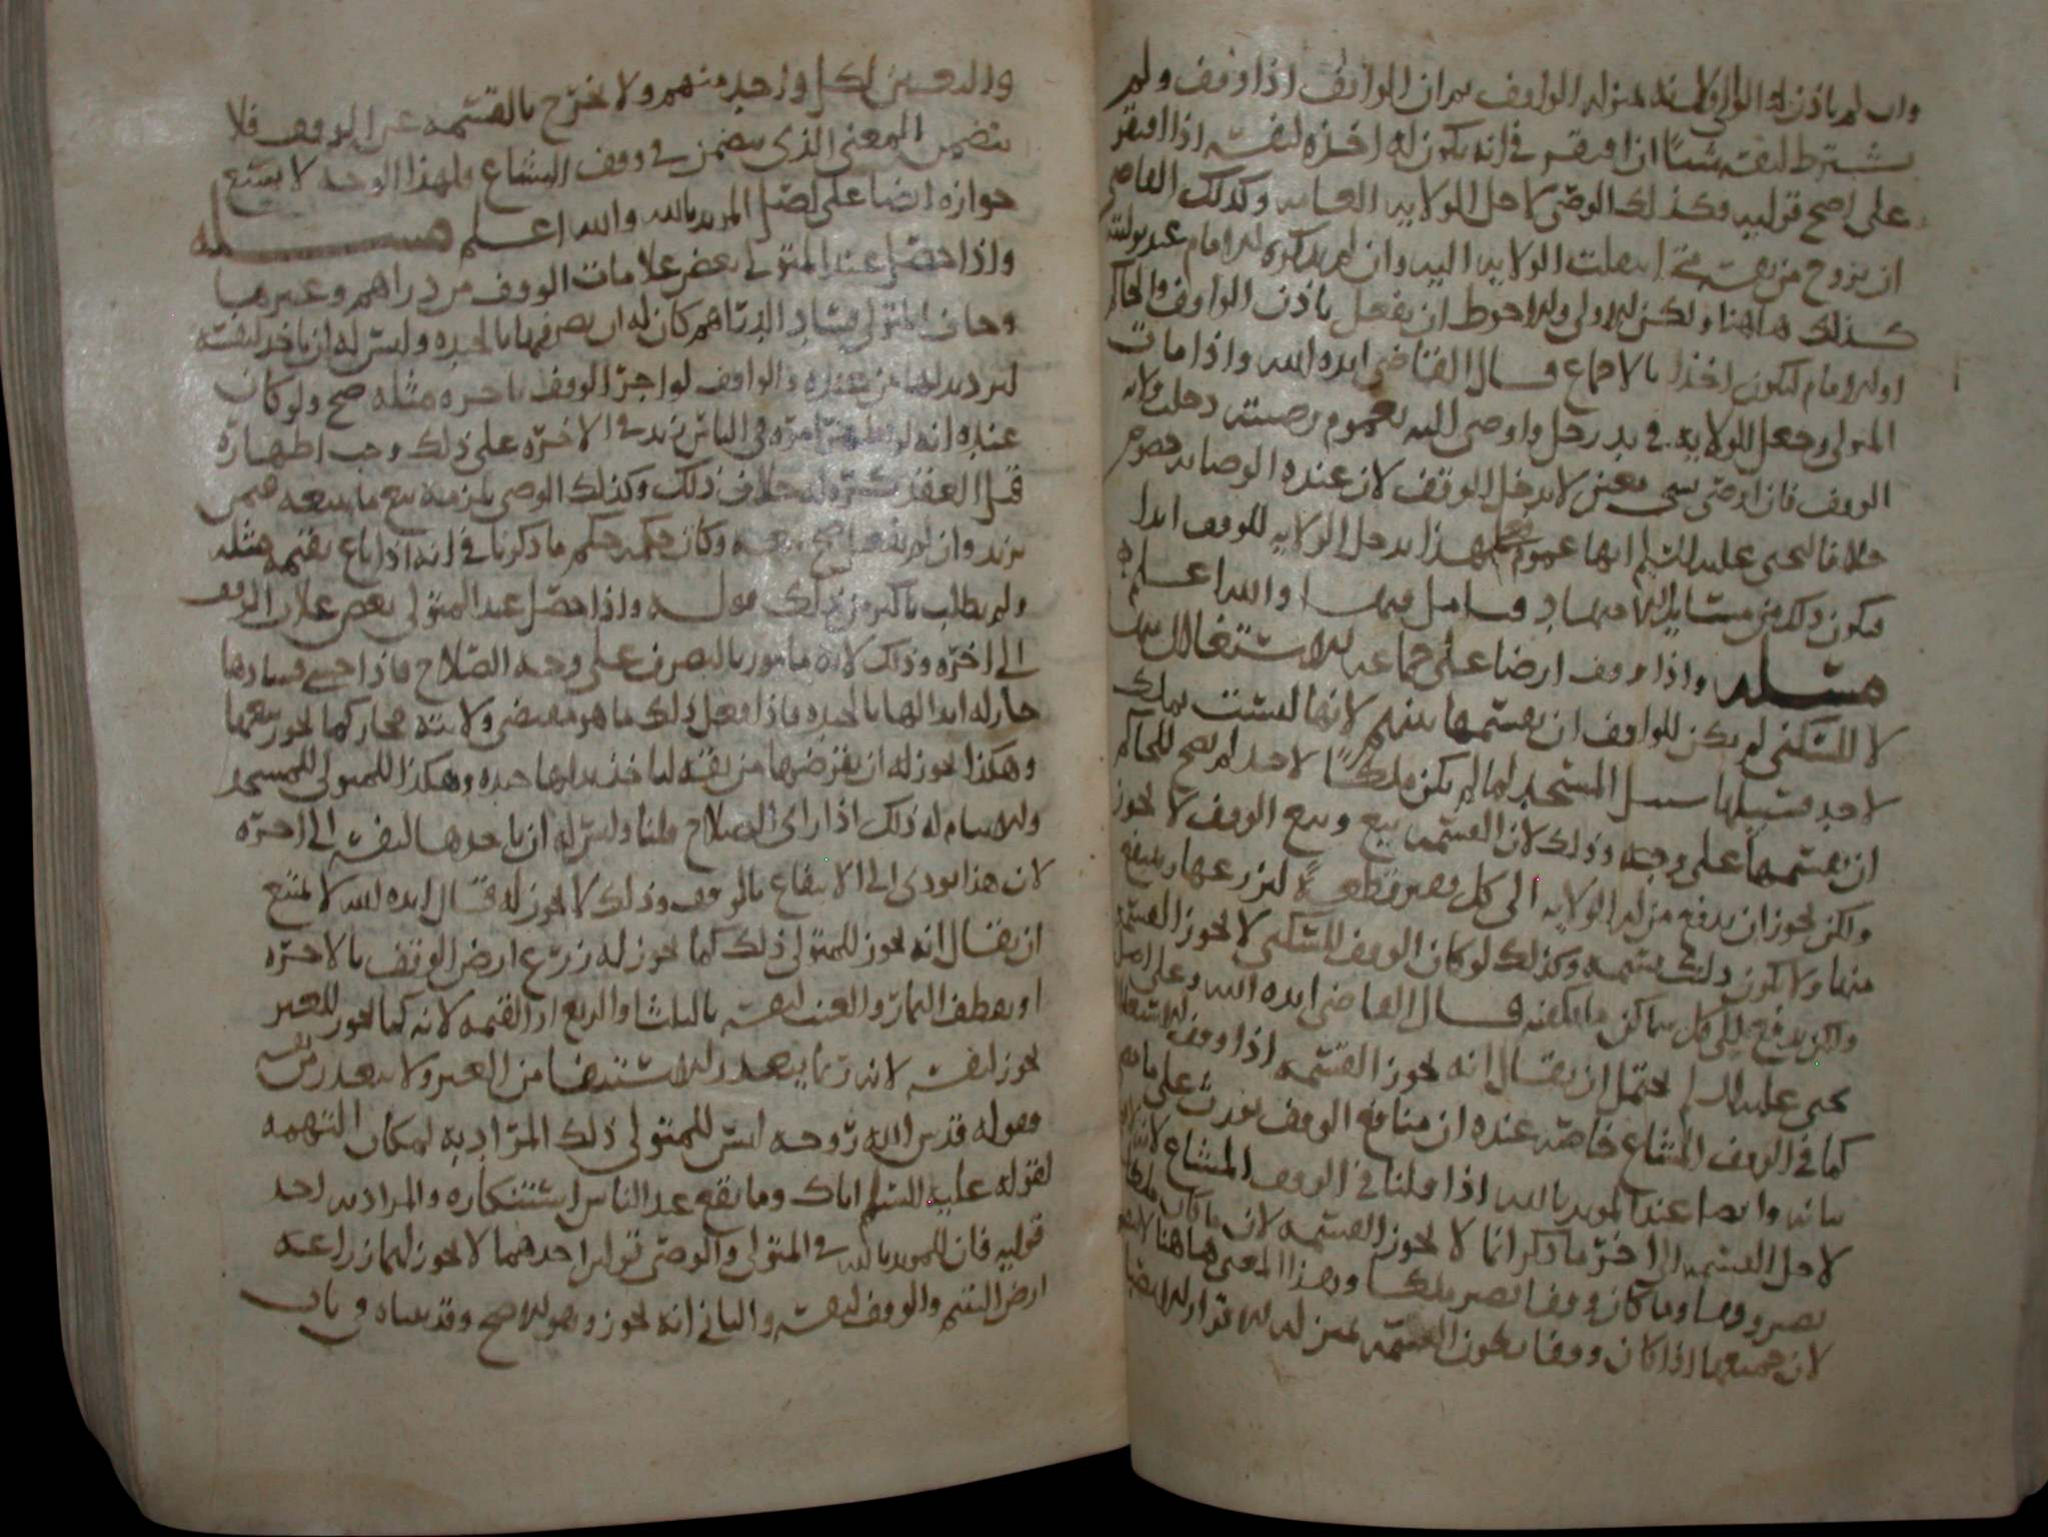 وان لم ياذن له الوالي لانه بمنزله الواقف ثم ان الواقف اذا وقف ولم
يشترط لنفسه شيئا اذا افتقر في انه يكون له اخذه لنفسه اذا افتقر
على اصح قوليه وكذلك الوصي لاجل الولايه العامه وكذلك القاضي
ان يزوج من نفسه متى انتهت الولايه اليه وان لم يذكره الامام عند توليته
كذلك هاهنا ولكن الاولى والاحوط ان يفعل باذن الواقف والحاكم
او الامام ليكون اخذا بالاجماع قال القاضي ايده الله واذا مات
المتولي وجعل الولايه في يد رجل واوصى اليه بعموم وصيته دخلت ولايه
الوقف فان اوصى بشي معين لا يدخل الوقف لان عنده الوصايه خصوص
خلافا ليحيى عليه السلم انها عموم فعلى هذا يدخل الولايه للوقف ابدا
فيكون ذلك من مسايل الاجتهاد فتامل فيها والله اعلم
مسله واذا وقف ارضا على جماعه للاستغلال بها
لا للسكنى لم يكن للواقف ان يقسمها بينهم لانها ليست بملك
لاحد فسبيلها سبيل المسجد لما لم يكن ملكا لاحد لم يصح للحاكم
ان يقسمها على وجه وذلك لان القسمه بيع وبيع الوقف لا يجوز
ولكن يجوز ان يدفع من له الولايه الى كل فقير قطعة ليزرعها وينتفع
منها ولا يكون ذلك قسمه وكذلك لو كان الوقف للسكنى لا يجوز القسمه
ولكن يدفع الى كل ساكن ما يكفيه قال القاضي ايده الله وعلى اصل
يحيى عليه السلم يحتمل ان يقال انه يجوز القسمه اذا وقف للاستغلال
كما في الوقف المشاع خاصه عنده ان منافع الوقف تورث على ما تم
بيانه وايضا عند المويد بالله اذا قلنا في الوقف المشاع لانه
لاجل القسمه الى اخر ما ذكر انما لا يجوز القسمه لان ما كان ملكا
يصير وقفا وما كان وقفا يصير ملكا وبهذا المعنى هاهنا
لان جميعها اذا كان وقفا يكون القسمه بمنزله الاقرار
والتعيين لكل واحد منهم ولا يخرج بالقسمه عن الوقف فلا
يتضمن المعنى الذي يتضمن في وقف المشاع ولهذا الوجه لا يمتنع
جوازه ايضا على اصل المويد بالله والله اعلم مسله
واذا حصل عند المتولي بعض غلات الوقف من دراهم وغيرها
وخاف المتولي فساد الدراهم كان له ان يصرفها بالجيده وليس له ان ياخذ لنفسه
ليرد بدلها من عنده والواقف لو اجر الوقف باجره مثله صح ولو كان
عنده انه لو اظهر امره في الناس يزيد في الاجره على ذلك وجب اظهاره
قبل العقد خلاف ذلك وكذلك الوصي يلزمه بيع ما يبيعه فيمن
يزيد وان لم يفعل صح بيعه وكان حكمه حكم ما ذكرنا في انه اذا باع بقيمه مثله
ولم يطلب باكثر من ذلك قوله واذا حصل عند المتولي بعض غلات الوقف
الى اخره وذلك لانه مامور بالتصرف على وجه الصلاح فاذا خشي فسادها
جاز له ابدالها بالجيده فاذا فعل ذلك ما هو مقتضى ولايته فجاز كما يجوز بيعها
وهكذا يجوز له ان يقرضها من ثقه لياخذ بدلها جيده وهكذا للمتولي للمسجد
وللامام له ذلك اذا راى الصلاح قلنا وليس له ان ياخذها لنفسه الى اخره
لان هذا يودي الى الانتفاع بالوقف وذلك لا يجوز له قال ايده الله لا يمتنع
ان يقال انه يجوز للمتولي ذلك كما يجوز له زرع ارض الوقف بالاجره
او يقطف الثمار والعنب لنفسه بالثلث او الربع او القيمه لانه كما يجوز للغير
يجوز لنفسه لانه ربما يتعذر الاستيفا من الغير ولا يتعذر من نفسه
وقوله قدس الله روحه ليس للمتولي ذلك المراد به لمكان التهمه
لقوله عليه السلم اياك وما يقع عند الناس استنكاره والمراد به احد
قوليه فان للمويد بالله في المتولي والوصي قولين احدهما لا يجوز لهما زراعه
ارض اليتيم والوقف لنفسه والثاني انه يجوز وهو الاصح وقد بيناه في باب